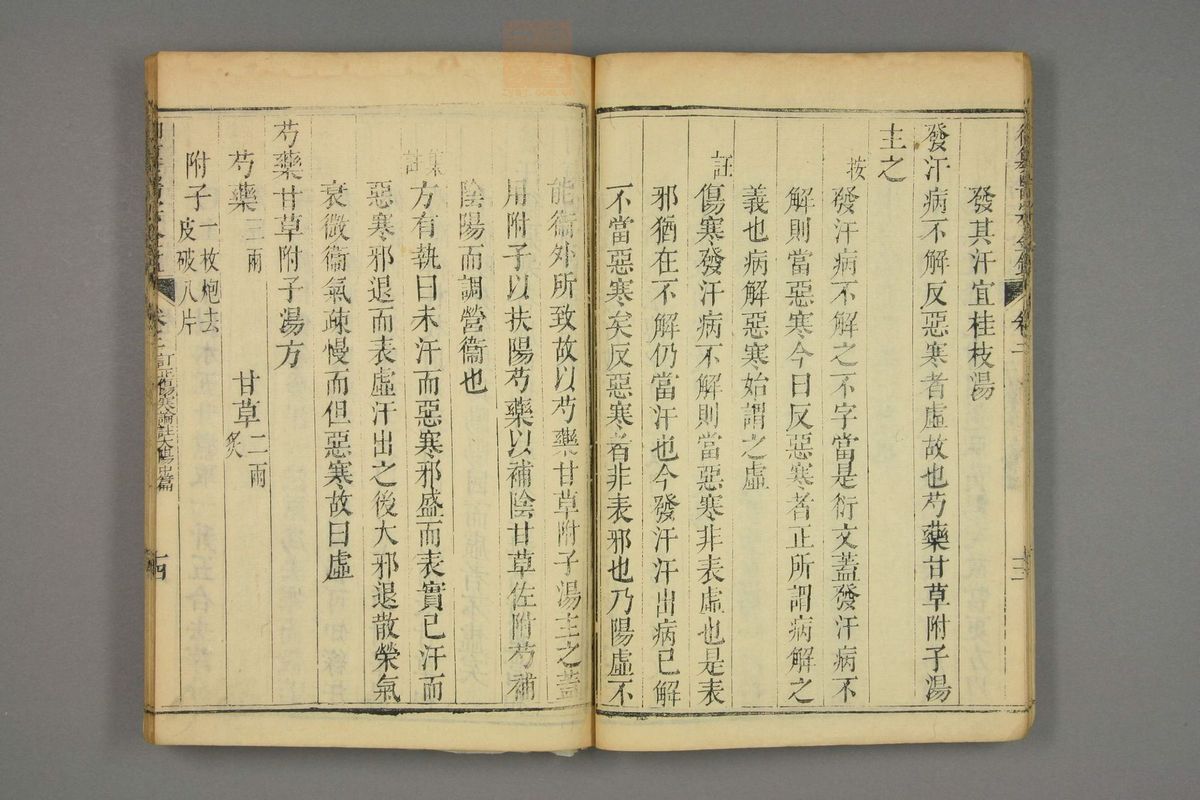 發其汗宜桂枝湯
發汗病不解反惡寒者虛故也芍藥甘草附子湯
主之
按
發汗病不解之不字當是衍文蓋發汗病不
解則當惡寒今日反惡寒者正所謂病解之
義也病解惡寒始謂之虛
註
傷寒發汗病不解則當惡寒非表虛也是表
邪猶在不解仍當汗也今發汗汗出病已解
不當惡寒矣反惡寒者非表邪也乃陽虛不
能衞外所致故以芍藥甘草附子湯主之蓋
用附子以扶陽芍藥以補陰甘草佐附芍補
陰陽而調營衞也
集註
方有執曰未汗而惡寒邪盛而表實已汗而
惡寒邪退而表虛汗出之後大邪退散榮氣
衰微衞氣疎慢而但惡寒故曰虛
芍藥甘草附子湯方
芍藥 三兩 甘草 二兩炙
附子 一枚炮去皮破八片
卷二 訂正傷寒論註太陽中篇
十四
卷二
十三